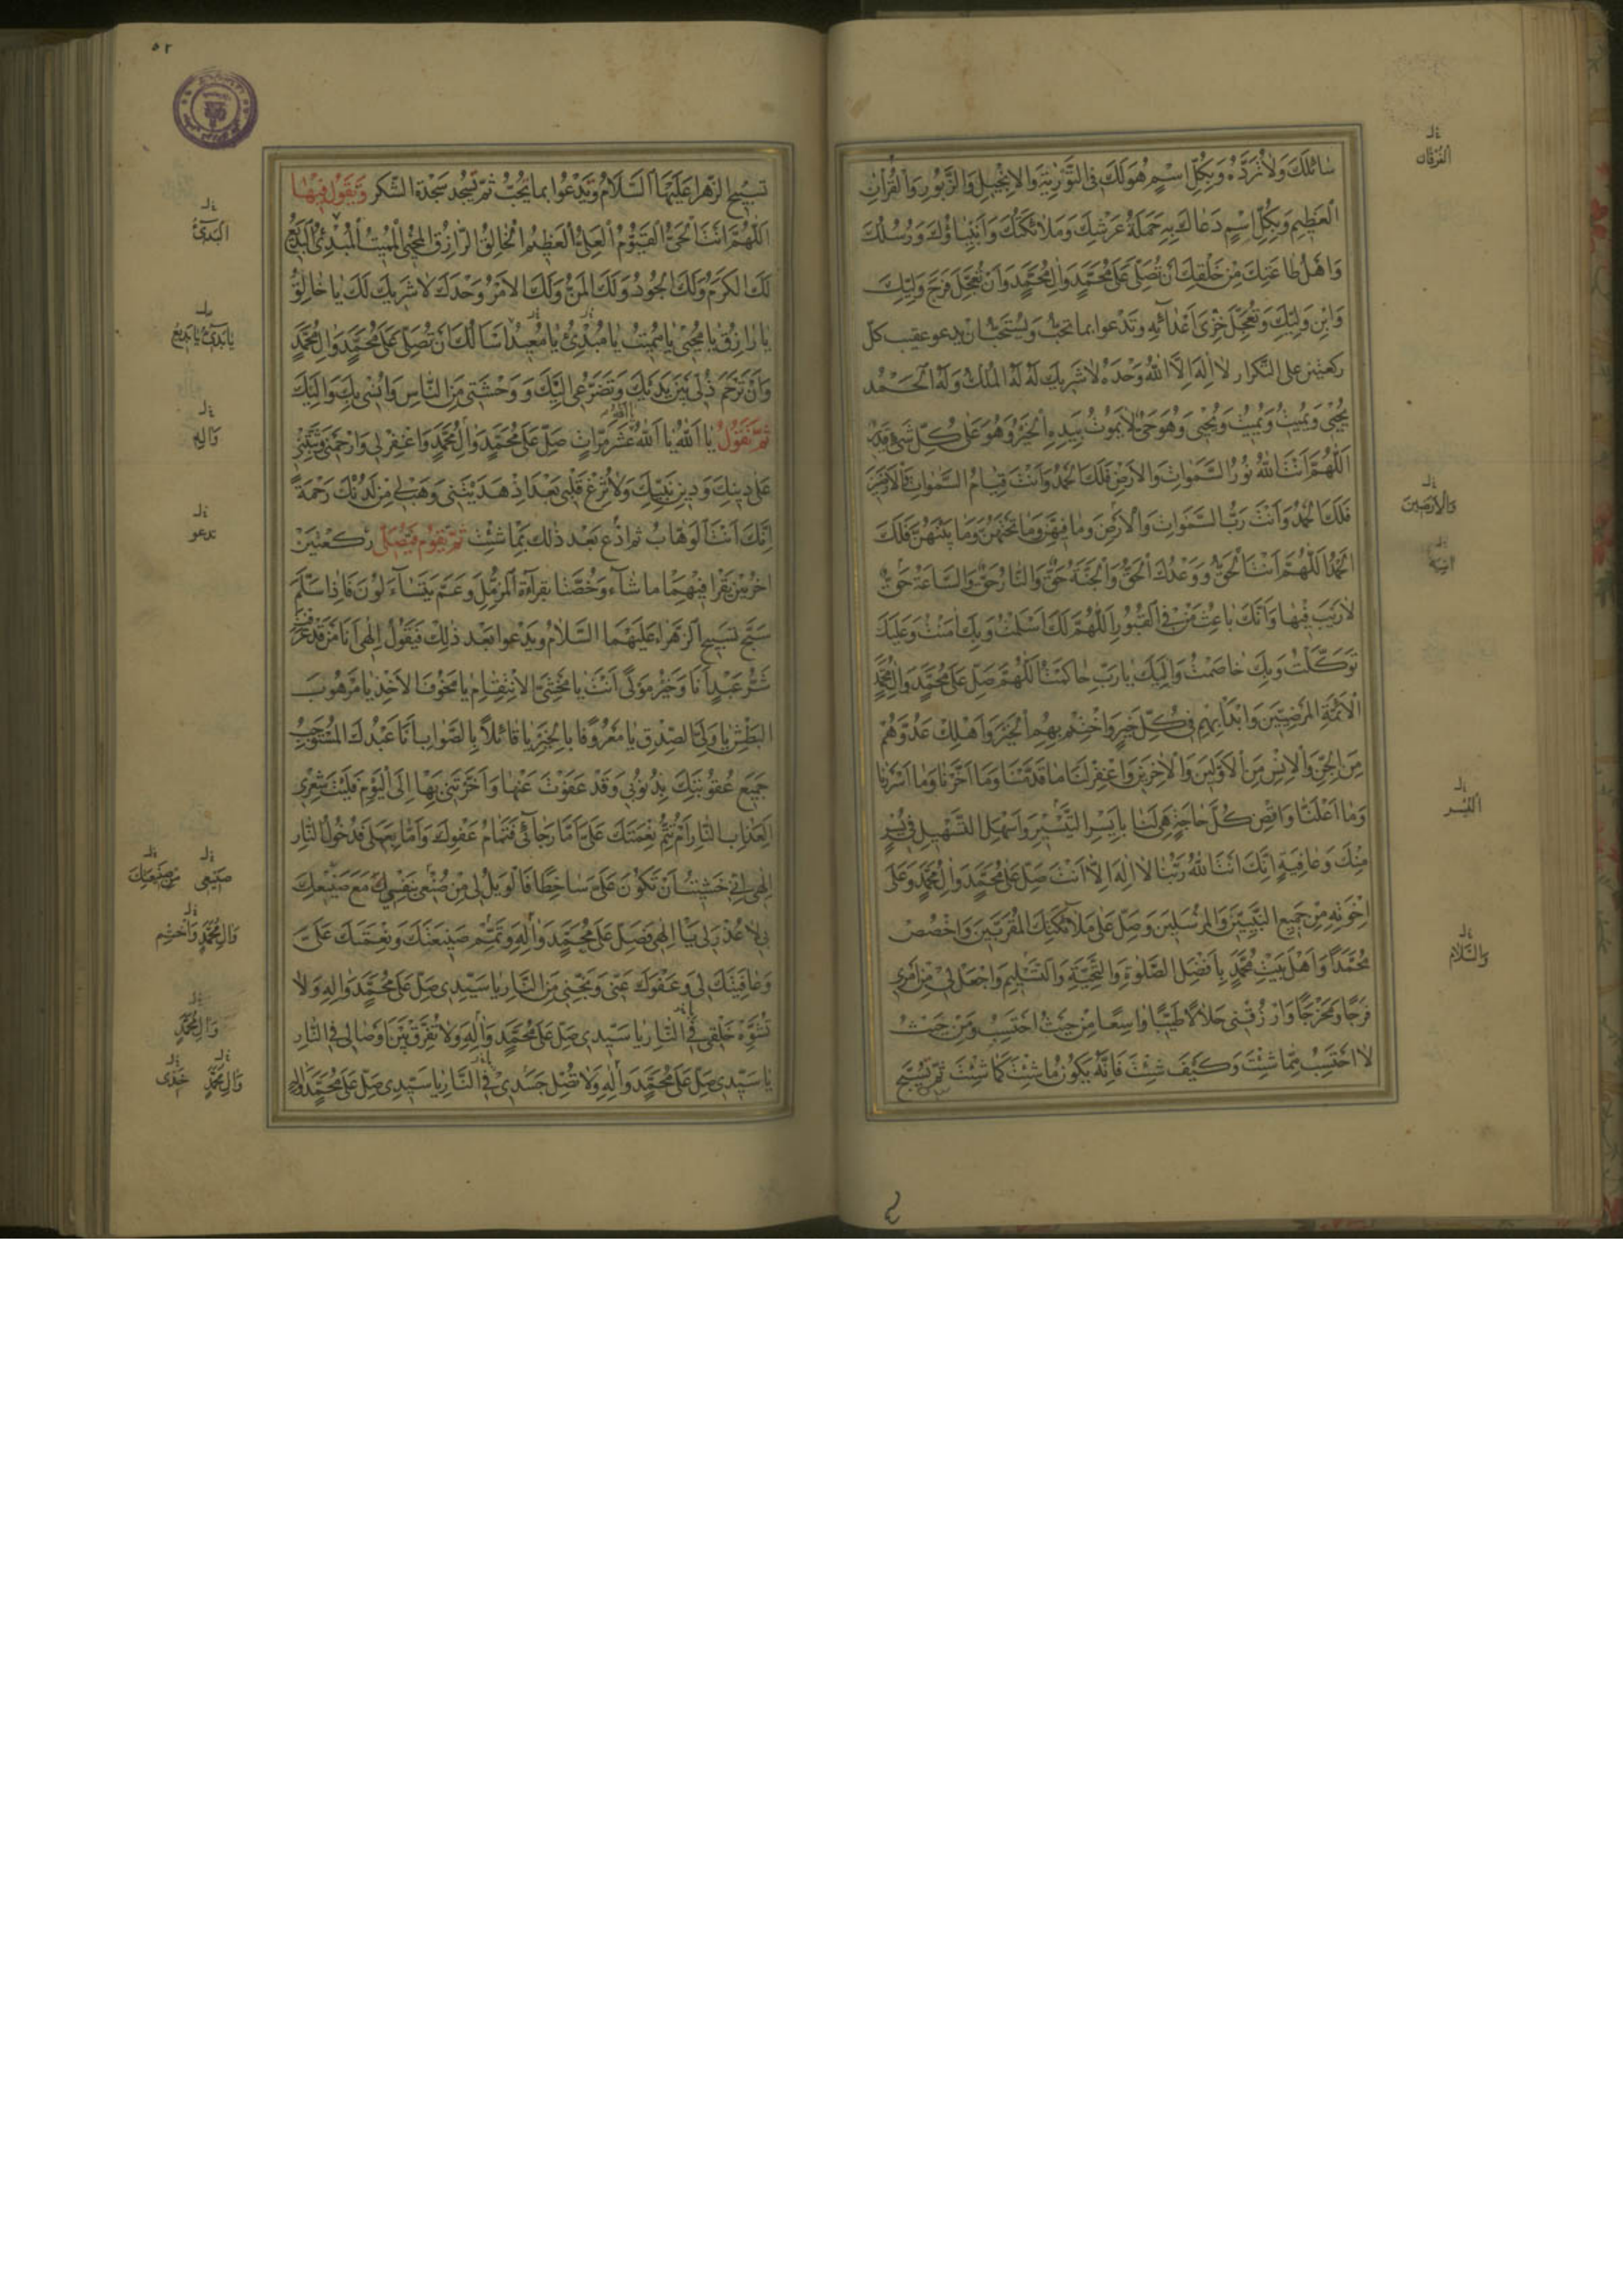 سٰائلَكَ وَلاٰ تُرَدُّهُ وَبِكُلِّ اسْمٍ هُوَ لَكَ فِى التَّوْرٰيةِ وَالاِنْجيلِ وَالزَّبُورِ وَالْقُرْاٰنِ
الْعَظيمِ وَبِكُلِّ اسْمٍ دَعٰاكَ بِهِ حَمَلَةُ عَرْشِكَ وَمَلاٰئكَتُكَ وَاَنْبِيٰاؤُكَ وَرُسُلُكَ
وَاَهْلُ طٰاعَتِكَ مِنْ خَلْقِكَ اَنْ تُصَلِّىَ عَلىٰ مُحَمَّدٍ وَاٰلِ مُحَمَّدٍ وَاَنْ تُعَجِّلَ فَرَجَ وَلِيِّكَ
وَابْنِ وَلِيِّكَ وَتُعَجِّلَ خِزْىَ اَعْدٰائهِ وَتَدْعُوا بما تحبّ ويُستحَبّ ان يدعو عقيب كلّ
ركعتين على التّكرار لاٰ اِلٰهَ اِلاَّ اللهُ وَحْدَهُ لاٰ شَريكَ لَهُ لَهُ الْمُلْكُ وَلَهُ الْحَمْدُ
يُحْيى وَيُميتُ وَيُميتُ وَيُحْيى وَهُوَ حَىٌّ لاٰ يَمُوتُ بِيَدِهِ الْخَيْرُ وَهُوَ عَلىٰ كُلِّ شَىْءٍ قَديرٌ
اَللّٰهُمَّ اَنْتَ اللهُ نُورُ السَّمٰوٰاتِ وَالاَرْضِ فَلَكَ الْحَمْدُ وَاَنْتَ قِيّٰامُ السَّمٰوٰاتِ وَالاَرْضِ
فَلَكَ الْحَمْدُ وَاَنْتَ رَبُّ السَّمٰوٰاتِ وَالاَرْضِ وَمٰا فيهِنَّ وَمٰا تَحْتَهُنَّ وَمٰا بَيْنَهُنَّ فَلَكَ
الْحَمْدُ اَللّٰهُمَّ اَنْتَ الْحَقُّ وَوَعْدُكَ الْحَقُّ وَالْجَنَّةُ حَقٌّ وَالنّٰارُ حَقٌّ وَالسّٰاعَةُ حَقٌّ
لاٰ رَيْبَ فيهٰا وَاَنَّكَ بٰاعِثُ مَنْ فِى الْقُبُورِ اَللّٰهُمَّ لَكَ اَسْلَمْتُ وَبِكَ اٰمَنْتُ وَعَلَيْكَ
تَوَكَّلْتُ وَبِكَ خٰاصَمْتُ وَاِلَيْكَ يٰا رَبِّ حٰاكَمْتُ اَللّٰهُمَّ صَلِّ عَلىٰ مُحَمَّدٍ وَاٰلِ مُحَمَّدٍ
الاَئمَّةِ الْمَرْضِيّينَ وَابْدَأْ بِهِمْ فى كُلِّ خَيْرٍ وَاخْتِمْ بِهِمُ الْخَيْرَ وَاَهْلِكْ عَدُوَّهُمْ
مِنَ الْجِنِّ وَالاِنْسِ مِنَ الاَوَّلينَ وَالاٰخِرينَ وَاغْفِرْ لَنٰا مٰا قَدَّمْنٰا وَمٰا اَخَّرْنٰا وَمٰا اَسْرَرْنٰا
وَمٰا اَعْلَنّٰا وَاقْضِ كُلَّ حٰاجَةٍ هِىَ لَنٰا بِاَيْسَرِ التَّيْسيرِ وَاَسْهَلِ التَّسْهيلِ فى يُسْرٍ
مِنْكَ وَعٰافِيَةٍ اِنَّكَ اَنْتَ اللهُ رَبُّنٰا لاٰ اِلٰهَ اِلاّٰ اَنْتَ صَلِّ عَلىٰ مُحَمَّدٍ وَاٰلِ مُحَمَّدٍ وَعَلىٰ
اِخْوَتِهِ مِنْ جَميعِ النَّبِيّينَ وَالْمُرْسَلينَ وَصَلِّ عَلىٰ مَلاٰئكَتِكَ الْمُقَرَّبينَ وَاخْصُصْ
مُحَمَّدًا وَاَهْلَ بَيْتِ مُحَمَّدٍ بِاَفْضَلِ الصَّلٰوةِ وَالتَّحِيَّةِ وَالتَّسْليمِ وَاجْعَلْ لى مِنْ اَمْرى
فَرَجًا وَمَخْرَجًا وَارْزُقْنى حَلاٰلاً طَيِّبًا وٰاسِعًا مِنْ حَيْثُ اَحْتَسِبُ وَمِنْ حَيْثُ
لاٰ اَحْتَسِبُ مِمّٰا شِئْتَ وَكَيْفَ شِئْتَ فَاِنَّهُ يَكُونُ مٰا شِئْتَ كَمٰا شِئْتَ ثمّ تسبّح
الفُرْقان
وَالاَرَضينَ
اليُسر
وَالسَّلام
٥٢
تسبيح الزّهراء عَلَيْهَا السَّلامُ وَتَدْعُوا بما تحبّ ثمّ تسْجُد سَجْدَة الشّكر وَتَقول فيهٰا
اَللّٰهُمَّ اَنْتَ الْحَىُّ الْقَيُّومُ الْعَلِىُّ الْعَظيمُ الْخٰالِقُ الرّٰازِقُ الْمُحْيِى الْمُميتُ الْمُبْدِئُ الْبَديعُ
لَكَ الْكَرَمُ وَلَكَ الْجُودُ وَلَكَ الْمَنُّ وَلَكَ الاَمْرُ وَحْدَكَ لاٰ شَريكَ لَكَ يٰا خٰالِقُ
يٰا رٰازِقُ يٰا مُحْيى يٰا مُميتُ يٰا مُبْدِئُ يٰا مُعيدُ اَسْاَلُكَ اَنْ تُصَلِّىَ عَلىٰ مُحَمَّدٍ وَاٰلِ مُحَمَّدٍ
وَاَنْ تَرْحَمَ ذُلّى بَيْنَ يَدَيْكَ وَتَضَرُّعى اِلَيْكَ وَوَحْشَتى مِنَ النّٰاسِ وَاُنْسى بِكَ وَاِلَيْكَ
ثمّ تَقُولُ يٰا اَللهُ يٰا اَللهُ عَشْرَ مَرّٰاتٍ صَلِّ عَلىٰ مُحَمَّدٍ وَاٰلِ مُحَمَّدٍ وَاغْفِرْ لى وَارْحَمْنى وَثَبِّتْنى
عَلىٰ دينِكَ وَدينِ نَبِيِّكَ وَلاٰ تُزِغْ قَلْبى بَعْدَ اِذْ هَدَيْتَنى وَهَبْ لى مِنْ لَدُنْكَ رَحْمَةً
اِنَّكَ اَنْتَ الْوَهّٰابُ ثم ادْع بَعْد ذٰلك بمٰا شئْتَ ثمّ تَقُوم فَتُصَلّى رَكعَتَيْن
اخْرَيَيْن يَقْرَا فيْهِمٰا ما شآءَ وَخُصَّتا بقرآءَة المزّمّل وَعَمّ يَتَسٰآءَلُونَ فَاِذا سَلّمَ
سَبَّح تسبيح الزهراء عَلَيْهَمَا السَّلاٰم ويَدْعوا بَعْد ذٰلِكَ فَيَقُول اِلٰهى اَنَا مَنْ قَدْ عَرَفْتَ
شَرُّ عَبْدٍ اَنَا وَخَيْرُ مَوْلًى اَنْتَ يٰا مَخْشِىَّ الاِنْتِقٰامِ يٰا مَخُوفَ الاَخْذِ يٰا مَرْهُوبَ
الْبَطْشِ يٰا وَلِىَّ الصِّدْقِ يٰا مَعْرُوفًا بِالْخَيْرِ يٰا قٰائلاً بِالصَّوٰابِ اَنَا عَبْدُكَ الْمُسْتَوْجِبُ
جَميعَ عُقُوبَتِكَ بِذُنُوبى وَقَدْ عَفَوْتَ عَنْهٰا وَاَخَّرْتَنى بِهٰا اِلَى الْيَوْمِ فَلَيْتَ شِعْرى
اَلِعَذٰابِ النّٰارِ اَمْ تُتِمُّ نِعْمَتَكَ عَلَىَّ اَمّٰا رَجٰائى فَتَمٰامُ عَفْوِكَ وَاَمّٰا بِعَمَلى فَدُخُولُ النّٰارِ
اِلٰهى اِنّى خَشيتُ اَنْ تَكُونَ عَلَىَّ سٰاخِطًا فَالْوَيْلُ لى مِنْ صُنْعى بِنَفْسى مَعَ صَنيعِكَ
بى لاٰ عُذْرَ لى يٰا اِلٰهى فَصَلِّ عَلىٰ مُحَمَّدٍ وَاٰلِهِ وَتَمِّمْ صَنيعَتَكَ وَنِعْمَتَكَ عَلَىَّ
وَعٰافِيَتَكَ لى وَعَفْوَكَ عَنّى وَنَجِّنى مِنَ النّٰارِ يٰا سَيِّدى صَلِّ عَلىٰ مُحَمَّدٍ وَاٰلِهِ وَلاٰ
تُشَوِّهْ خَلْقى فِى النّٰارِ يٰا سَيِّدى صَلِّ عَلىٰ مُحَمَّدٍ وَاٰلِهِ وَلاٰ تُفَرِّقْ بَيْنَ اَوْصٰالى فِى النّٰارِ
يٰا سَيِّدى صَلِّ عَلىٰ مُحَمَّدٍ وَاٰلِهِ وَلاٰ تُصْلِ جَسَدى فِى النّٰارِ يٰا سَيِّدى صَلِّ عَلىٰ مُحَمَّدٍ وَاٰلِهِ
اَلْبَدئُ
يٰا بَدئُ يٰا بَديعُ
وَاٰلِهِ
تدعو
صَنيعى مِنْ صَنيعِكَ
وَاٰلِ مُحَمَّدٍ وَاخْتِم
وَاٰلِ مُحَمَّدٍ
وَاٰلِ مُحَمَّدٍ خَدّى